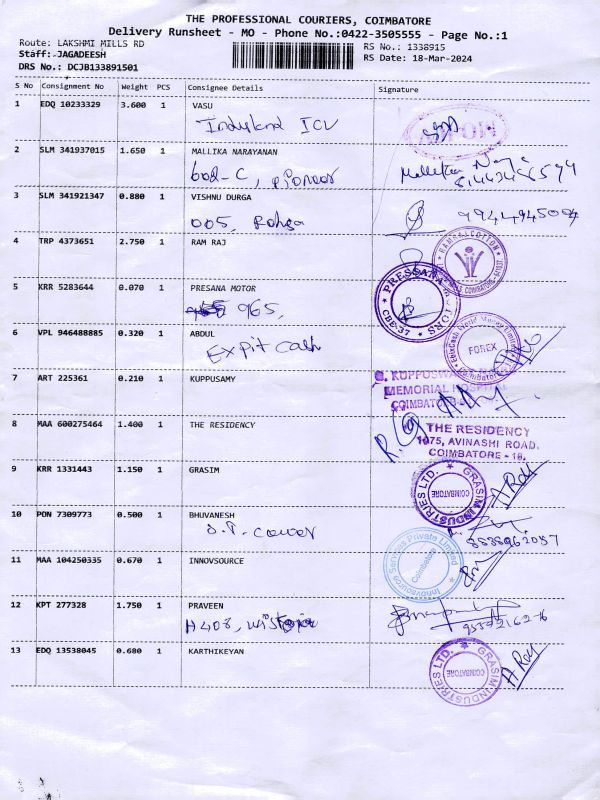 THE PROFESSIONAL COURIERS, COIMBATORE
Delivery Runsheet - MO - Phone No.:0422-3505555 - Page No.:1
Route: LAKSHMI MILLS RD
RS No.: 1338915
Staff: JAGADEESH
RS Date: 18-Mar-2024
DRS No.: DCJB133891501
S No Consignment No Weight PCS Consignee Details Signature
1 EDQ 10233329 3.600 1 VASU
2 SLM 341937015 1.650 1 MALLIKA NARAYANAN
602-C, Pioneer
3 SLM 341921347 0.880 1 VISHNU DURGA
005,
4 TRP 4373651 2.750 1 RAM RAJ
RAMRAJ COTTON
5 KRR 5283644 0.070 1 PRESANA MOTOR
965,
PRESSANA MOTORS
CBE-37
6 VPL 946488885 0.320 1 ABDUL
Expit Cash
FOREX
7 ART 225361 0.210 1 KUPPUSAMY
MEMORIAL HOSPITAL
8 MAA 600275464 1.400 1 THE RESIDENCY
THE RESIDENCY
1075, AVINASHI ROAD,
COIMBATORE - 18.
9 KRR 1331443 1.150 1 GRASIM
GRASIM INDUSTRIES LTD.
COIMBATORE
10 PON 7309773 0.500 1 BHUVANESH
11 MAA 104250335 0.670 1 INNOVSOURCE
Innovsource Services Private Limited
Coimbatore
12 KPT 277328 1.750 1 PRAVEEN
A408,
13 EDQ 13538045 0.680 1 KARTHIKEYAN
GRASIM INDUSTRIES LTD.
COIMBATORE